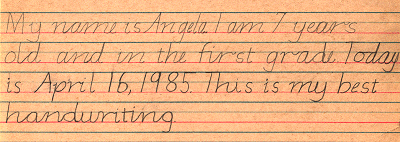 My name is Angela. I am 7 years
old and in the first grade. Today
is April 16, 1985. This is my best
handwriting